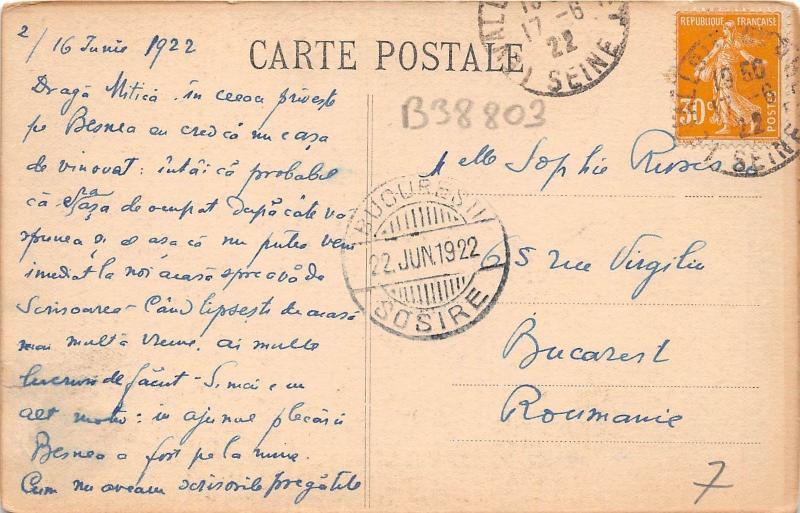 2/ 16 Iunie 1922
CARTE POSTALE
Dragă Mitică, în ceeace privește
pe Besnea eu cred că nu e așa
de vinovat: întâi că probabil
că era așa de ocupat după câte va
spunea și așa că nu putea veni
imediat la noi acasă spre a vă da
Scrisoarea - Când lipsești de acasă
mai multă vreme, ai multe
lucruri de făcut - Și mai e un
alt motiv: în ajunul plecării
Besnea a fost pe la mine.
Cum nu aveam scrisorile pregătite
B38803
REPUBLIQUE FRANÇAISE
30 c
POSTES
17 -6
22
SEINE
15 50
22
SEINE
BUCUREȘTI
22.JUN.1922
SOSIRE
Mlle Sophie
65 rue Virgiliu
Bucarest
Roumanie
7